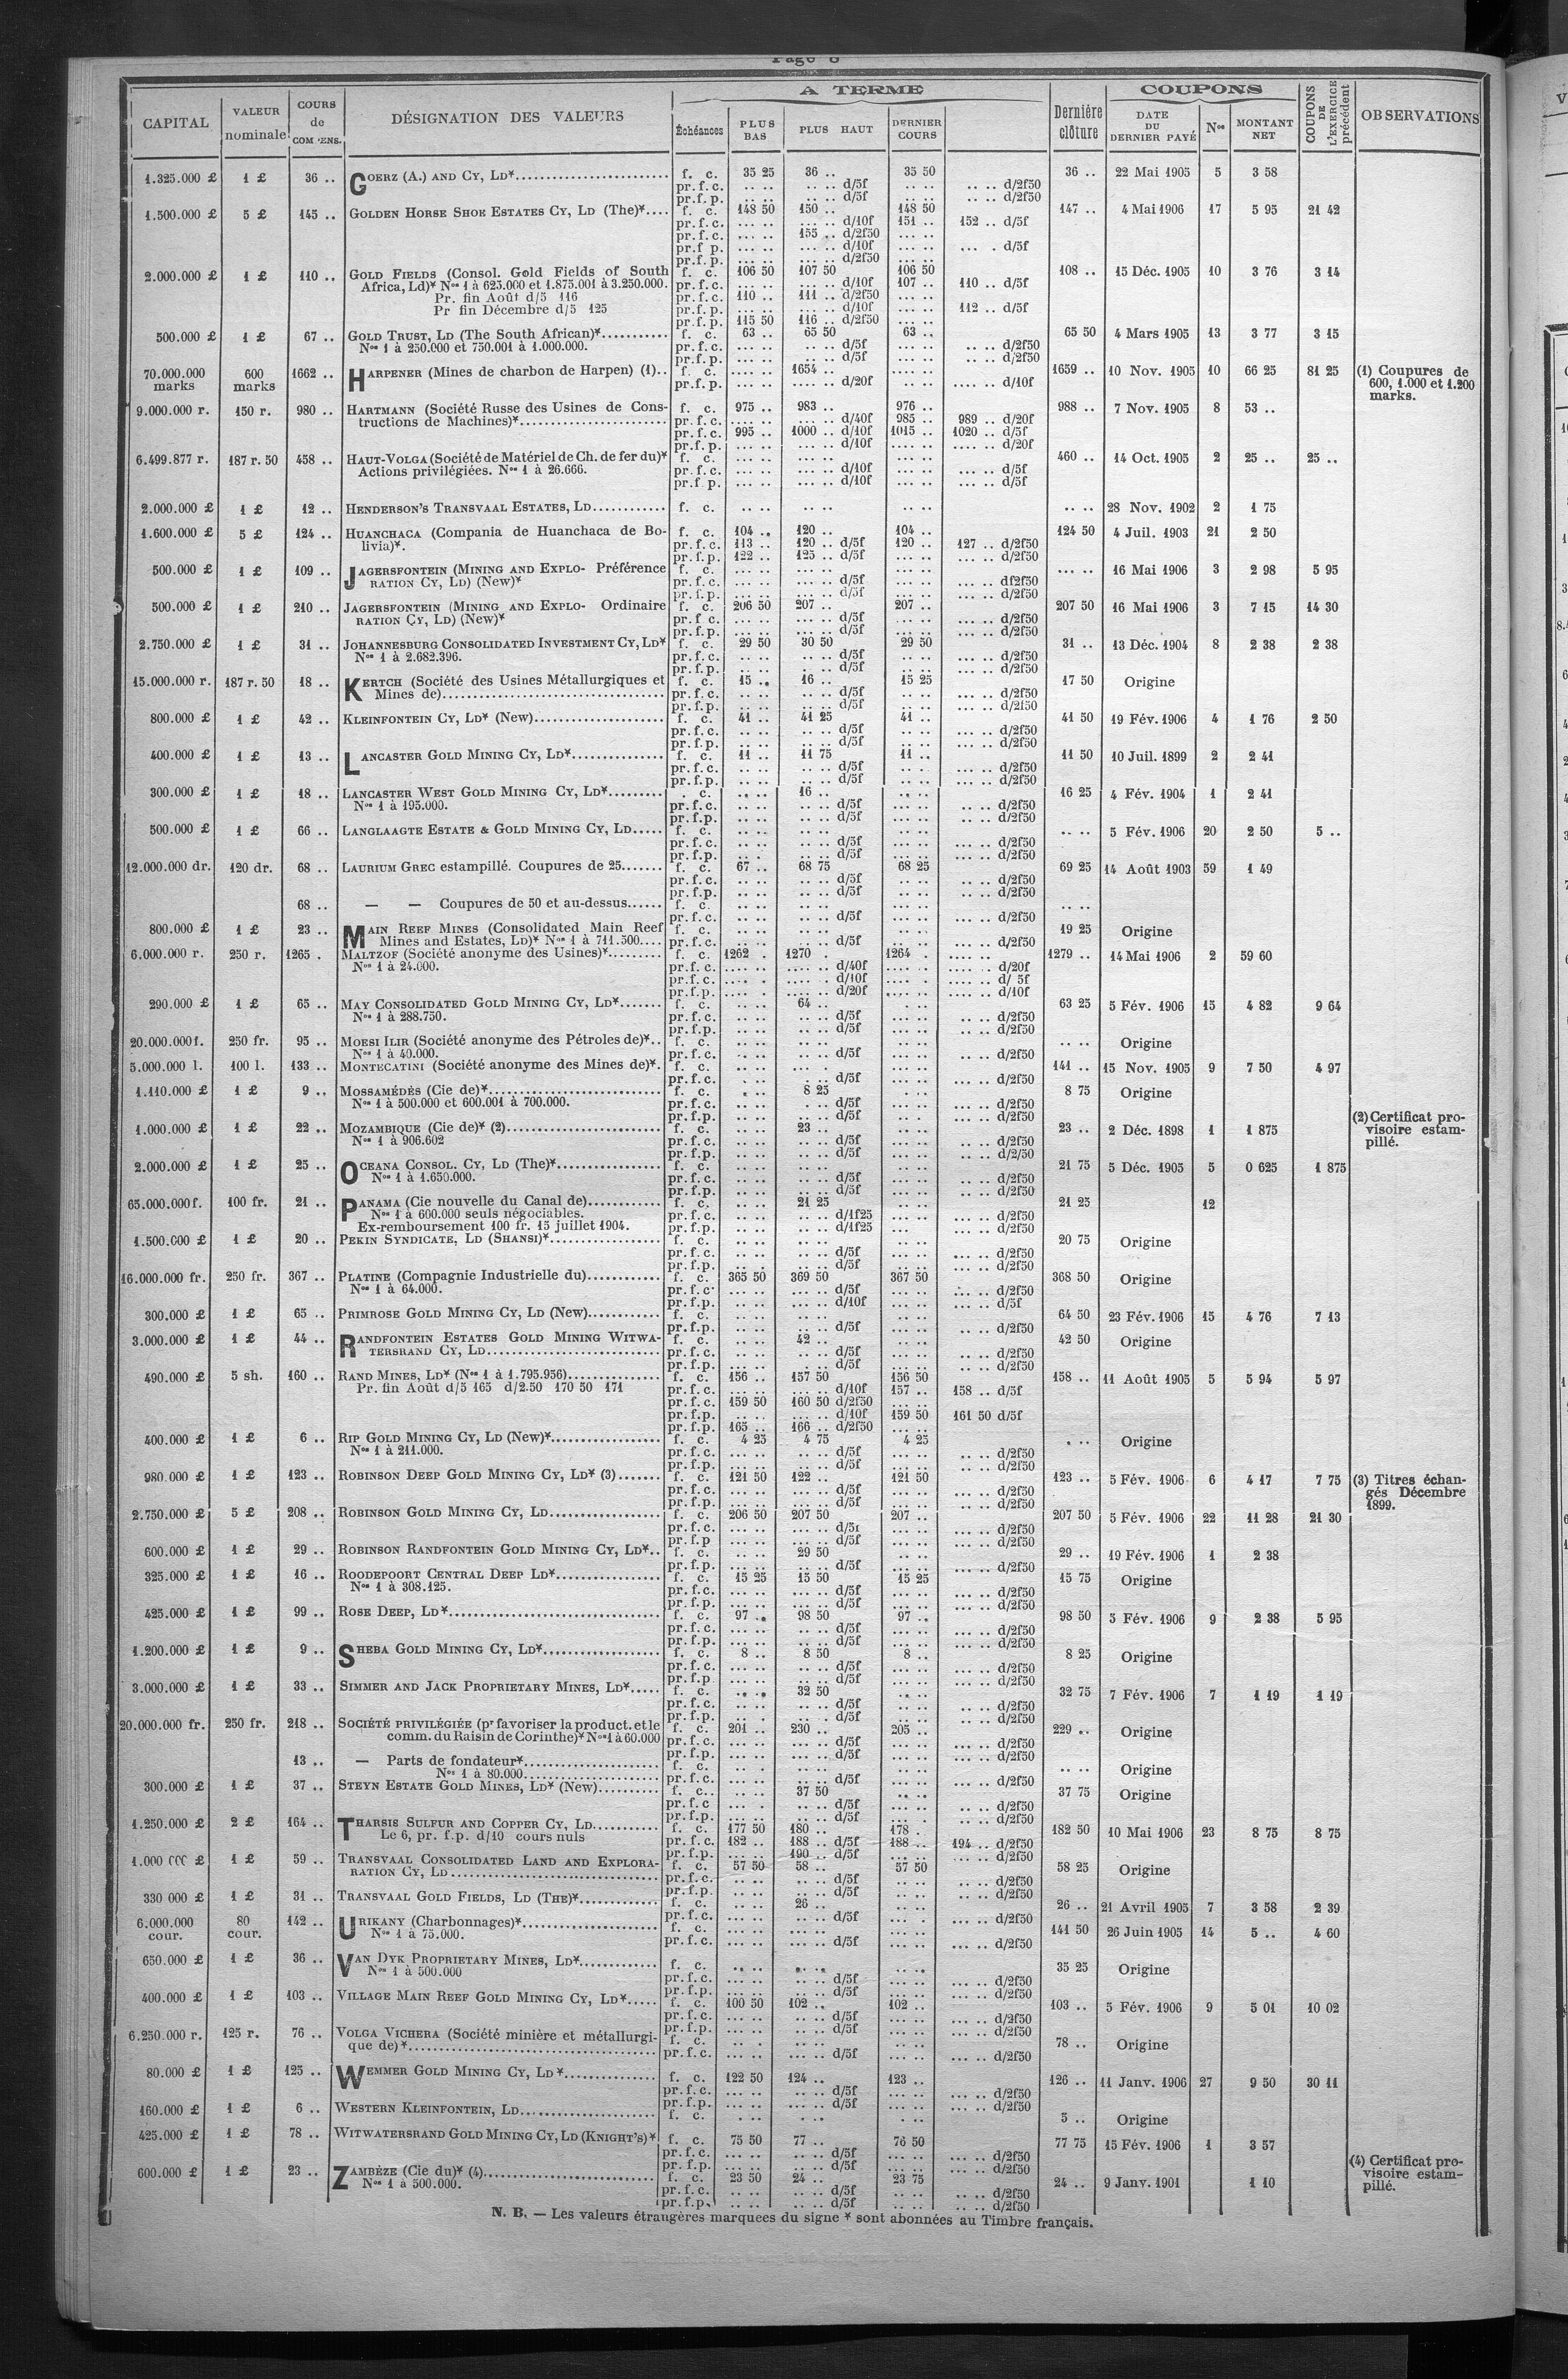 Page 8
CAPITAL | VALEUR nominale | COURS de COMPENS. | DÉSIGNATION DES VALEURS | A TERME | Dernière clôture | COUPONS | COUPONS DE L'EXERCICE précédent | OBSERVATIONS
Échéances | PLUS BAS | PLUS HAUT | DERNIER COURS | DATE DU DERNIER PAYÉ | Nos | MONTANT NET
1.325.000 £ | 1 £ | 36 .. | GOERZ (A.) AND CY, LD* | f. c. | 35 25 | 36 .. | 35 50 | 36 .. | 22 Mai 1905 | 5 | 3 58
pr. f. c. .. .. | .. .. d/5f | .. .. | .. .. d/2f50
pr. f. p. .. .. | .. .. d/5f | .. .. | .. .. d/2f50
1.500.000 £ | 5 £ | 145 .. | GOLDEN HORSE SHOE ESTATES CY, LD (The)* | f. c. | 148 50 | 150 .. | 148 50 | 147 .. | 4 Mai 1906 | 17 | 5 95 | 21 42
pr. f. c. ... .. | ... .. d/10f | 151 .. | 152 .. d/5f
pr. f. c. ... .. | 155 .. d/2f50 | ... ..
pr. f. p. ... .. | ... .. d/10f | ... .. | ... . d/5f
pr. f. p. ... .. | ... .. d/2f50 | ... ..
2.000.000 £ | 1 £ | 110 .. | GOLD FIELDS (Consol. Gold Fields of South | f. c. | 106 50 | 107 50 | 106 50 | 108 .. | 15 Déc. 1905 | 10 | 3 76 | 3 14
Africa, Ld)* Nos 1 à 625.000 et 1.875.001 à 3.250.000. | pr. f. c. | ... .. | ... .. d/10f | 107 .. | 110 .. d/5f
Pr. fin Août d/5 116 | pr. f. c. | 110 .. | 111 .. d/2f50 | ... ..
Pr fin Décembre d/5 125 | pr. f. p. | ... .. | ... .. d/10f | ... .. | 112 .. d/5f
pr. f. p. | 115 50 | 116 .. d/2f50 | ... ..
500.000 £ | 1 £ | 67 .. | GOLD TRUST, LD (The South African)* | f. c. | 63 .. | 65 50 | 63 .. | 65 50 | 4 Mars 1905 | 13 | 3 77 | 3 15
Nos 1 à 250.000 et 750.001 à 1.000.000. | pr. f. c. | ... .. | .. .. d/5f | ... .. | .. .. d/2f50
pr. f. p. | ... .. | .. .. d/5f | ... .. | .. .. d/2f50
70.000.000 marks | 600 marks | 1662 .. | HARPENER (Mines de charbon de Harpen) (1).. | f. c. | .... .. | 1654 .. | .... .. | 1659 .. | 10 Nov. 1905 | 10 | 66 25 | 81 25 | (1) Coupures de 600, 1.000 et 1.200 marks.
pr. f. p. | .... .. | .... .. d/20f | .... .. | .... .. d/10f
9.000.000 r. | 150 r. | 980 .. | HARTMANN (Société Russe des Usines de Cons- | f. c. | 975 .. | 983 .. | 976 .. | 988 .. | 7 Nov. 1905 | 8 | 53 ..
tructions de Machines)* | pr. f. c. | .... .. | .... .. d/40f | 985 .. | 989 .. d/20f
pr. f. c. | 995 .. | 1000 .. d/10f | 1015 .. | 1020 .. d/5f
pr. f. p. | .... .. | .... .. d/10f | .... .. | .... .. d/20f
6.499.877 r. | 187 r. 50 | 458 .. | HAUT-VOLGA (Société de Matériel de Ch. de fer du)* | f. c. | ... .. | ... .. | ... .. | 460 .. | 14 Oct. 1905 | 2 | 25 .. | 25 ..
Actions privilégiées. Nos 1 à 26.666. | pr. f. c. | ... .. | ... .. d/10f | ... .. | ... .. d/5f
pr. f. p. | ... .. | ... .. d/10f | ... .. | ... .. d/5f
2.000.000 £ | 1 £ | 12 .. | HENDERSON'S TRANSVAAL ESTATES, LD | f. c. | .. .. | .. .. | .. .. | .. .. | 28 Nov. 1902 | 2 | 1 75
1.600.000 £ | 5 £ | 124 .. | HUANCHACA (Compania de Huanchaca de Bo- | f. c. | 104 .. | 120 .. | 104 .. | 124 50 | 4 Juil. 1903 | 21 | 2 50
livia)*. | pr. f. c. | 113 .. | 120 .. d/5f | 120 .. | 127 .. d/2f50
pr. f. p. | 122 .. | 125 .. d/5f | ... .. | ... .. d/2f50
500.000 £ | 1 £ | 109 .. | JAGERSFONTEIN (MINING AND EXPLO- Préférence | f. c. | ... .. | ... .. | ... .. | ... .. | 16 Mai 1906 | 3 | 2 98 | 5 95
RATION CY, LD) (New)* | pr. f. c. | ... .. | ... .. d/5f | ... .. | ... .. df2f50
pr. f. p. | ... .. | ... .. d/5f | ... .. | ... .. d/2f50
500.000 £ | 1 £ | 210 .. | JAGERSFONTEIN (MINING AND EXPLO- Ordinaire | f. c. | 206 50 | 207 .. | 207 .. | 207 50 | 16 Mai 1906 | 3 | 7 15 | 14 30
RATION CY, LD) (New)* | pr. f. c. | ... .. | ... .. d/5f | ... .. | ... .. d/2f50
pr. f. p. | ... .. | ... .. d/5f | ... .. | ... .. d/2f50
2.750.000 £ | 1 £ | 31 .. | JOHANNESBURG CONSOLIDATED INVESTMENT CY, LD* | f. c. | 29 50 | 30 50 | 29 50 | 31 .. | 13 Déc. 1904 | 8 | 2 38 | 2 38
Nos 1 à 2.682.396. | pr. f. c. | .. .. | .. .. d/5f | .. .. | ... .. d/2f50
pr. f. p. | .. .. | .. .. d/5f | .. .. | ... .. d/2f50
15.000.000 r. | 187 r. 50 | 18 .. | KERTCH (Société des Usines Métallurgiques et | f. c. | 15 .. | 16 .. | 15 25 | 17 50 | Origine
Mines de) | pr. f. c. | .. .. | .. .. d/5f | .. .. | ... .. d/2f50
pr. f. p. | .. .. | .. .. d/5f | .. .. | ... .. d/2f50
800.000 £ | 1 £ | 42 .. | KLEINFONTEIN CY, LD* (New) | f. c. | 41 .. | 41 25 | 41 .. | 41 50 | 19 Fév. 1906 | 4 | 1 76 | 2 50
pr. f. c. | .. .. | .. .. d/5f | .. .. | ... .. d/2f50
pr. f. p. | .. .. | .. .. d/5f | .. .. | ... .. d/2f50
400.000 £ | 1 £ | 13 .. | LANCASTER GOLD MINING CY, LD* | f. c. | 11 .. | 11 75 | 11 .. | 11 50 | 10 Juil. 1899 | 2 | 2 41
pr. f. c. | .. .. | .. .. d/5f | .. .. | ... .. d/2f50
pr. f. p. | .. .. | .. .. d/5f | .. .. | ... .. d/2f50
300.000 £ | 1 £ | 18 .. | LANCASTER WEST GOLD MINING CY, LD* | . c. | .. .. | 16 .. | .. .. | 16 25 | 4 Fév. 1904 | 1 | 2 41
Nos 1 à 195.000. | pr. f. c. | .. .. | .. .. d/5f | .. .. | .. .. d/2f50
pr. f. p. | .. .. | .. .. d/5f | .. .. | .. .. d/2f50
500.000 £ | 1 £ | 66 .. | LANGLAAGTE ESTATE & GOLD MINING CY, LD | f. c. | .. .. | .. .. | .. .. | .. .. | 5 Fév. 1906 | 20 | 2 50 | 5 ..
pr. f. c. | .. .. | .. .. d/5f | .. .. | .. .. d/2f50
pr. f. p. | .. .. | .. .. d/5f | .. .. | .. .. d/2f50
12.000.000 dr. | 120 dr. | 68 .. | LAURIUM GREC estampillé. Coupures de 25 | f. c. | 67 .. | 68 75 | 68 25 | 69 25 | 14 Août 1903 | 59 | 1 49
pr. f. c. | .. .. | .. .. d/5f | .. .. | .. .. d/2f50
pr. f. p. | .. .. | .. .. d/5f | .. .. | .. .. d/2f50
68 .. | — — Coupures de 50 et au-dessus | f. c. | .. .. | .. .. | .. .. | .. ..
pr. f. c. | .. .. | .. .. d/5f | .. .. | .. .. d/2f50
800.000 £ | 1 £ | 23 .. | MAIN REEF MINES (Consolidated Main Reef | f. c. | .. .. | .. .. | .. .. | 19 25 | Origine
Mines and Estates, LD)* Nos 1 à 711.500 | pr. f. c. | .. .. | .. .. d/5f | .. .. | .. .. d/2f50
6.000.000 r. | 250 r. | 1265 . | MALTZOF (Société anonyme des Usines)* | f. c. | 1262 . | 1270 . | 1264 . | .... .. | 1279 .. | 14 Mai 1906 | 2 | 59 60
Nos 1 à 24.000. | pr. f. c. | .... .. | .... .. d/40f | .... .. | .... .. d/20f
pr. f. c. | .... . | .... . d/10f | .... . | .... .. d/ 5f
pr. f. p. | .... . | .... .. d/20f | .... .. | .... .. d/10f
290.000 £ | 1 £ | 65 .. | MAY CONSOLIDATED GOLD MINING CY, LD* | f. c. | .. .. | 64 .. | . .. | 63 25 | 5 Fév. 1906 | 15 | 4 82 | 9 64
Nos 1 à 288.750. | pr. f. c. | .. .. | .. .. d/5f | .. .. | ... .. d/2f50
pr. f. p. | .. .. | .. .. d/5f | .. .. | ... .. d/2f50
20.000.000f. | 250 fr. | 95 .. | MOESI ILIR (Société anonyme des Pétroles de)*.. | f. c. | .. .. | .. .. | .. .. | .. .. | Origine
Nos 1 à 40.000. | pr. f. c. | .. .. | .. .. d/5f | .. .. | .. .. d/2f50
5.000.000 l. | 100 l. | 133 .. | MONTECATINI (Société anonyme des Mines de)*. | f. c. | ... .. | ... . | ... .. | 141 .. | 15 Nov. 1905 | 9 | 7 50 | 4 97
pr. f. c. | ... .. | ... .. d/5f | ... .. | ... .. d/2f50
1.110.000 £ | 1 £ | 9 .. | MOSSAMÉDÈS (Cie de)* | f. c. | . .. | 8 25 | . .. | 8 75 | Origine
Nos 1 à 500.000 et 600.001 à 700.000. | pr. f. c. | . .. | . .. d/5f | . .. | ... .. d/2f50
pr. f. p. | .. .. | .. .. d/5f | . .. | ... .. d/2f50
1.000.000 £ | 1 £ | 22 .. | MOZAMBIQUE (Cie de)* (2) | f. c. | .. .. | 23 .. | .. .. | 23 .. | 2 Déc. 1898 | 1 | 1 875 | (2) Certificat provisoire estampillé.
Nos 1 à 906.602 | pr. f. c. | .. .. | .. .. d/5f | .. .. | .. .. d/2f50
pr. f. p. | .. .. | .. .. d/5f | .. .. | .. .. d/2/50
2.000.000 £ | 1 £ | 25 .. | OCEANA CONSOL. CY, LD (The)* | f. c. | .. .. | .. .. | .. .. | 21 75 | 5 Déc. 1905 | 5 | 0 625 | 1 875
Nos 1 à 1.650.000. | pr. f. c. | .. .. | .. .. d/5f | .. .. | .. .. d/2f50
pr. f. p. | .. .. | .. .. d/5f | .. .. | .. .. d/2f50
65.000.000f. | 100 fr. | 21 .. | PANAMA (Cie nouvelle du Canal de) | f. c. | .. .. | 21 25 | .. .. | 21 25 | 12
Nos 1 à 600.000 seuls négociables. | pr. f. c. | .. .. | .. .. d/1f25 | .. .. | .. .. d/2f50
Ex-remboursement 100 fr. 15 juillet 1904. | pr. f. p. | .. .. | .. .. d/1f25 | ... | .. .. d/2f50
1.500.000 £ | 1 £ | 20 .. | PEKIN SYNDICATE, LD (SHANSI)* | f. c. | .. .. | .. .. | .. .. | 20 75 | Origine
pr. f. c. | .. .. | .. .. d/5f | .. .. | ... .. d/2f50
pr. f. p. | .. .. | .. .. d/5f | ... .. | ... .. d/2f50
16.000.000 fr. | 250 fr. | 367 .. | PLATINE (Compagnie Industrielle du) | f. c. | 365 50 | 369 50 | 367 50 | 368 50 | Origine
Nos 1 à 64.000. | pr. f. c. | ... .. | ... .. d/5f | ... .. | ... .. d/2f50
pr. f. p. | ... .. | ... .. d/10f | ... .. | ... .. d/5f
300.000 £ | 1 £ | 65 .. | PRIMROSE GOLD MINING CY, LD (New) | f. c. | .. .. | .. .. | .. .. | 64 50 | 23 Fév. 1906 | 15 | 4 76 | 7 13
pr. f. p. | .. .. | .. .. d/5f | .. .. | .. .. d/2f50
3.000.000 £ | 1 £ | 44 .. | RANDFONTEIN ESTATES GOLD MINING WITWA- | f. c. | .. .. | 42 .. | .. .. | 42 50 | Origine
TERSRAND CY, LD | pr. f. c. | .. .. | .. .. d/5f | .. .. | .. .. d/2f50
pr. f. p. | .. .. | .. .. d/5f | .. .. | .. .. d/2f50
490.000 £ | 5 sh. | 160 .. | RAND MINES, LD* (Nos 1 à 1.795.956) | f. c. | 156 .. | 157 50 | 156 50 | 158 .. | 11 Août 1905 | 5 | 5 94 | 5 97
Pr. fin Août d/5 165 d/2.50 170 50 171 | pr. f. c. | ... .. | ... .. d/10f | 157 .. | 158 .. d/5f
pr. f. c. | 159 50 | 160 50 d/2f50 | ... ..
pr. f. p. | .. .. | ... .. d/10f | 159 50 | 161 50 d/5f
pr. f. p. | 165 .. | 166 .. d/2f50 | ... ..
400.000 £ | 1 £ | 6 .. | RIP GOLD MINING CY, LD (New)* | f. c. | 4 25 | 4 75 | 4 25 | . .. | Origine
Nos 1 à 211.000. | pr. f. c. | .. .. | .. .. d/5f | .. .. | .. .. d/2f50
pr. f. p. | ... .. | .. .. d/5f | ... .. | .. .. d/2f50
980.000 £ | 1 £ | 123 .. | ROBINSON DEEP GOLD MINING CY, LD* (3) | f. c. | 121 50 | 122 .. | 121 50 | 123 .. | 5 Fév. 1906 | 6 | 4 17 | 7 75 | (3) Titres échangés Décembre 1899.
pr. f. c. | ... .. | ... .. d/5f | ... .. | ... .. d/2f50
pr. f. p. | ... .. | ... .. d/5f | ... .. | ... .. d/2f50
2.750.000 £ | 5 £ | 208 .. | ROBINSON GOLD MINING CY, LD | f. c. | 206 50 | 207 50 | 207 .. | 207 50 | 5 Fév. 1906 | 22 | 11 28 | 21 30
pr. f. c. | ... .. | ... .. d/5f | ... .. | ... .. d/2f50
pr. f. p | ... .. | ... .. d/5f | ... .. | ... .. d/2f50
600.000 £ | 1 £ | 29 .. | ROBINSON RANDFONTEIN GOLD MINING CY, LD*.. | f. c. | .. .. | 29 50 | .. .. | 29 .. | 19 Fév. 1906 | 1 | 2 38
pr. f. p. | ... .. | .. .. d/5f | ... .. | ... .. d/2f50
325.000 £ | 1 £ | 16 .. | ROODEPOORT CENTRAL DEEP LD* | f. c. | 15 25 | 15 50 | 15 25 | 15 75 | Origine
Nos 1 à 308.125. | pr. f. c. | ... .. | .. .. d/5f | ... .. | ... .. d/2f50
pr. f. p. | ... .. | .. .. d/5f | ... .. | ... .. d/2f50
425.000 £ | 1 £ | 99 .. | ROSE DEEP, LD* | f. c. | 97 .. | 98 50 | 97 .. | 98 50 | 5 Fév. 1906 | 9 | 2 38 | 5 95
pr. f. c. | .. .. | .. .. d/5f | ... .. | ... .. d/2f50
pr. f. p. | ... .. | .. .. d/5f | ... .. | ... .. d/2f50
1.200.000 £ | 1 £ | 9 .. | SHEBA GOLD MINING CY, LD* | f. c. | 8 .. | 8 50 | 8 .. | 8 25 | Origine
pr. f. c. | ... .. | .. .. d/5f | ... .. | ... .. d/2f50
pr. f. p | ... .. | .. .. d/5f | ... .. | ... .. d/2f50
3.000.000 £ | 1 £ | 33 .. | SIMMER AND JACK PROPRIETARY MINES, LD* | f. c. | .. .. | 32 50 | .. .. | 32 75 | 7 Fév. 1906 | 7 | 1 19 | 1 19
pr. f. c. | .. .. | .. .. d/5f | .. .. | .. .. d/2f50
pr. f. p. | .. .. | .. .. d/5f | .. .. | .. .. d/2f50
20.000.000 fr. | 250 fr. | 218 .. | SOCIÉTÉ PRIVILÉGIÉE (pr favoriser la product. et le | f. c. | 201 .. | 230 .. | 205 .. | 229 .. | Origine
comm. du Raisin de Corinthe)* Nos 1 à 60.000 | pr. f. c. | ... .. | ... .. d/5f | ... .. | ... .. d/2f50
pr. f. p. | ... .. | ... .. d/5f | ... .. | ... .. d/2f50
13 .. | — Parts de fondateur* | f. c. | .. . | .. .. | .. .. | .. .. | Origine
Nos 1 à 80.000 | pr. f. c. | ... .. | ... .. d/5f | ... .. | ... .. d/2f50
300.000 £ | 1 £ | 37 .. | STEYN ESTATE GOLD MINES, LD* (New) | f. c. | .. .. | 37 50 | .. .. | 37 75 | Origine
pr. f. c | ... . | .. .. d/5f | ... .. | ... .. d/2f50
pr. f. p. | ... .. | .. .. d/5f | ... . | ... .. d/2f50
1.250.000 £ | 2 £ | 164 .. | THARSIS SULFUR AND COPPER CY, LD | f. c. | 177 50 | 180 .. | 178 . | 182 50 | 10 Mai 1906 | 23 | 8 75 | 8 75
Le 6, pr. f.p. d/10 cours nuls | pr. f. c. | 182 .. | 188 .. d/5f | 188 .. | 194 .. d/2f50
pr. f. p. | ... .. | 190 .. d/5f | ... .. | ... .. d/2f50
1.000 000 £ | 1 £ | 59 .. | TRANSVAAL CONSOLIDATED LAND AND EXPLORA- | f. c. | 57 50 | 58 .. | 57 50 | 58 25 | Origine
RATION CY, LD | pr. f. c. | .. .. | .. .. d/5f | .. .. | .. .. d/2f50
pr. f. p. | .. .. | .. .. d/5f | .. .. | .. .. d/2f50
330 000 £ | 1 £ | 31 .. | TRANSVAAL GOLD FIELDS, LD (THE)* | f. c. | .. .. | 26 .. | .. .. | 26 .. | 21 Avril 1905 | 7 | 3 58 | 2 39
pr. f. c. | ... . | .. .. d/5f | ... . | ... .. d/2f50
6.000.000 cour. | 80 cour. | 142 .. | URIKANY (Charbonnages)* | f. c. | ... .. | ... .. | ... .. | 141 50 | 26 Juin 1905 | 14 | 5 .. | 4 60
Nos 1 à 75.000. | pr. f. c. | ... .. | ... .. d/5f | ... .. | ... .. d/2f50
650.000 £ | 1 £ | 36 .. | VAN DYK PROPRIETARY MINES, LD* | f. c. | .. .. | .. .. | .. .. | 35 25 | Origine
Nos 1 à 500.000 | pr. f. c. | ... .. | .. .. d/5f | ... .. | ... .. d/2f50
pr. f. p. | ... .. | .. .. d/5f | ... .. | ... .. d/2f50
400.000 £ | 1 £ | 103 .. | VILLAGE MAIN REEF GOLD MINING CY, LD* | f. c. | 100 50 | 102 .. | 102 .. | 103 .. | 5 Fév. 1906 | 9 | 5 01 | 10 02
pr. f. c. | ... .. | .. .. d/5f | ... .. | ... .. d/2f50
pr. f. p. | ... .. | .. .. d/5f | ... .. | ... .. d/2f50
6.250.000 r. | 125 r. | 76 .. | VOLGA VICHERA (Société minière et métallurgi- | f. c. | .. . | .. .. | .. .. | 78 .. | Origine
que de)* | pr. f. c. | ... .. | ... .. d/5f | ... .. | ... .. d/2f50
80.000 £ | 1 £ | 125 .. | WEMMER GOLD MINING CY, LD* | f. c. | 122 50 | 124 .. | 123 .. | 126 .. | 11 Janv. 1906 | 27 | 9 50 | 30 11
pr. f. c. | ... .. | ... .. d/5f | ... .. | ... .. d/2f50
pr. f. p. | ... .. | ... .. d/5f | ... .. | ... .. d/2f50
160.000 £ | 1 £ | 6 .. | WESTERN KLEINFONTEIN, LD | f. c. | . .. | . .. | . .. | 5 .. | Origine
425.000 £ | 1 £ | 78 .. | WITWATERSRAND GOLD MINING CY, LD (KNIGHT'S)* | f. c. | 75 50 | 77 .. | 76 50 | 77 75 | 15 Fév. 1906 | 1 | 3 57
pr. f. c. | ... .. | .. .. d/5f | ... .. | ... .. d/2f50
pr. f. p. | ... .. | .. .. d/5f | ... .. | ... .. d/2f50
600.000 £ | 1 £ | 23 .. | ZAMBÈZE (Cie du)* (4) | f. c. | 23 50 | 24 .. | 23 75 | 24 .. | 9 Janv. 1901 | 1 10 | (4) Certificat provisoire estampillé.
Nos 1 à 500.000. | pr. f. c. | .. .. | .. .. d/5f | .. .. | .. .. d/2f50
pr. f. p. | .. .. | .. .. d/5f | .. .. | .. .. d/2f50
N. B. — Les valeurs étrangères marquees du signe * sont abonnées au Timbre français.